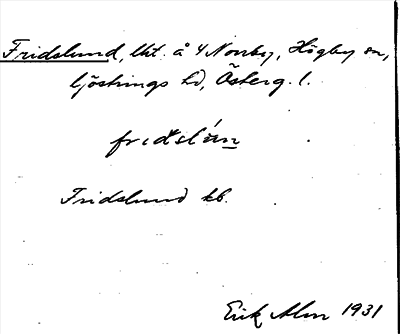 Fridslund, lht. å 4 Norrby, Högby sn,
Göstrings hd, Österg. l.
fridslún
Fridslund kb.
Erik Alm 1931